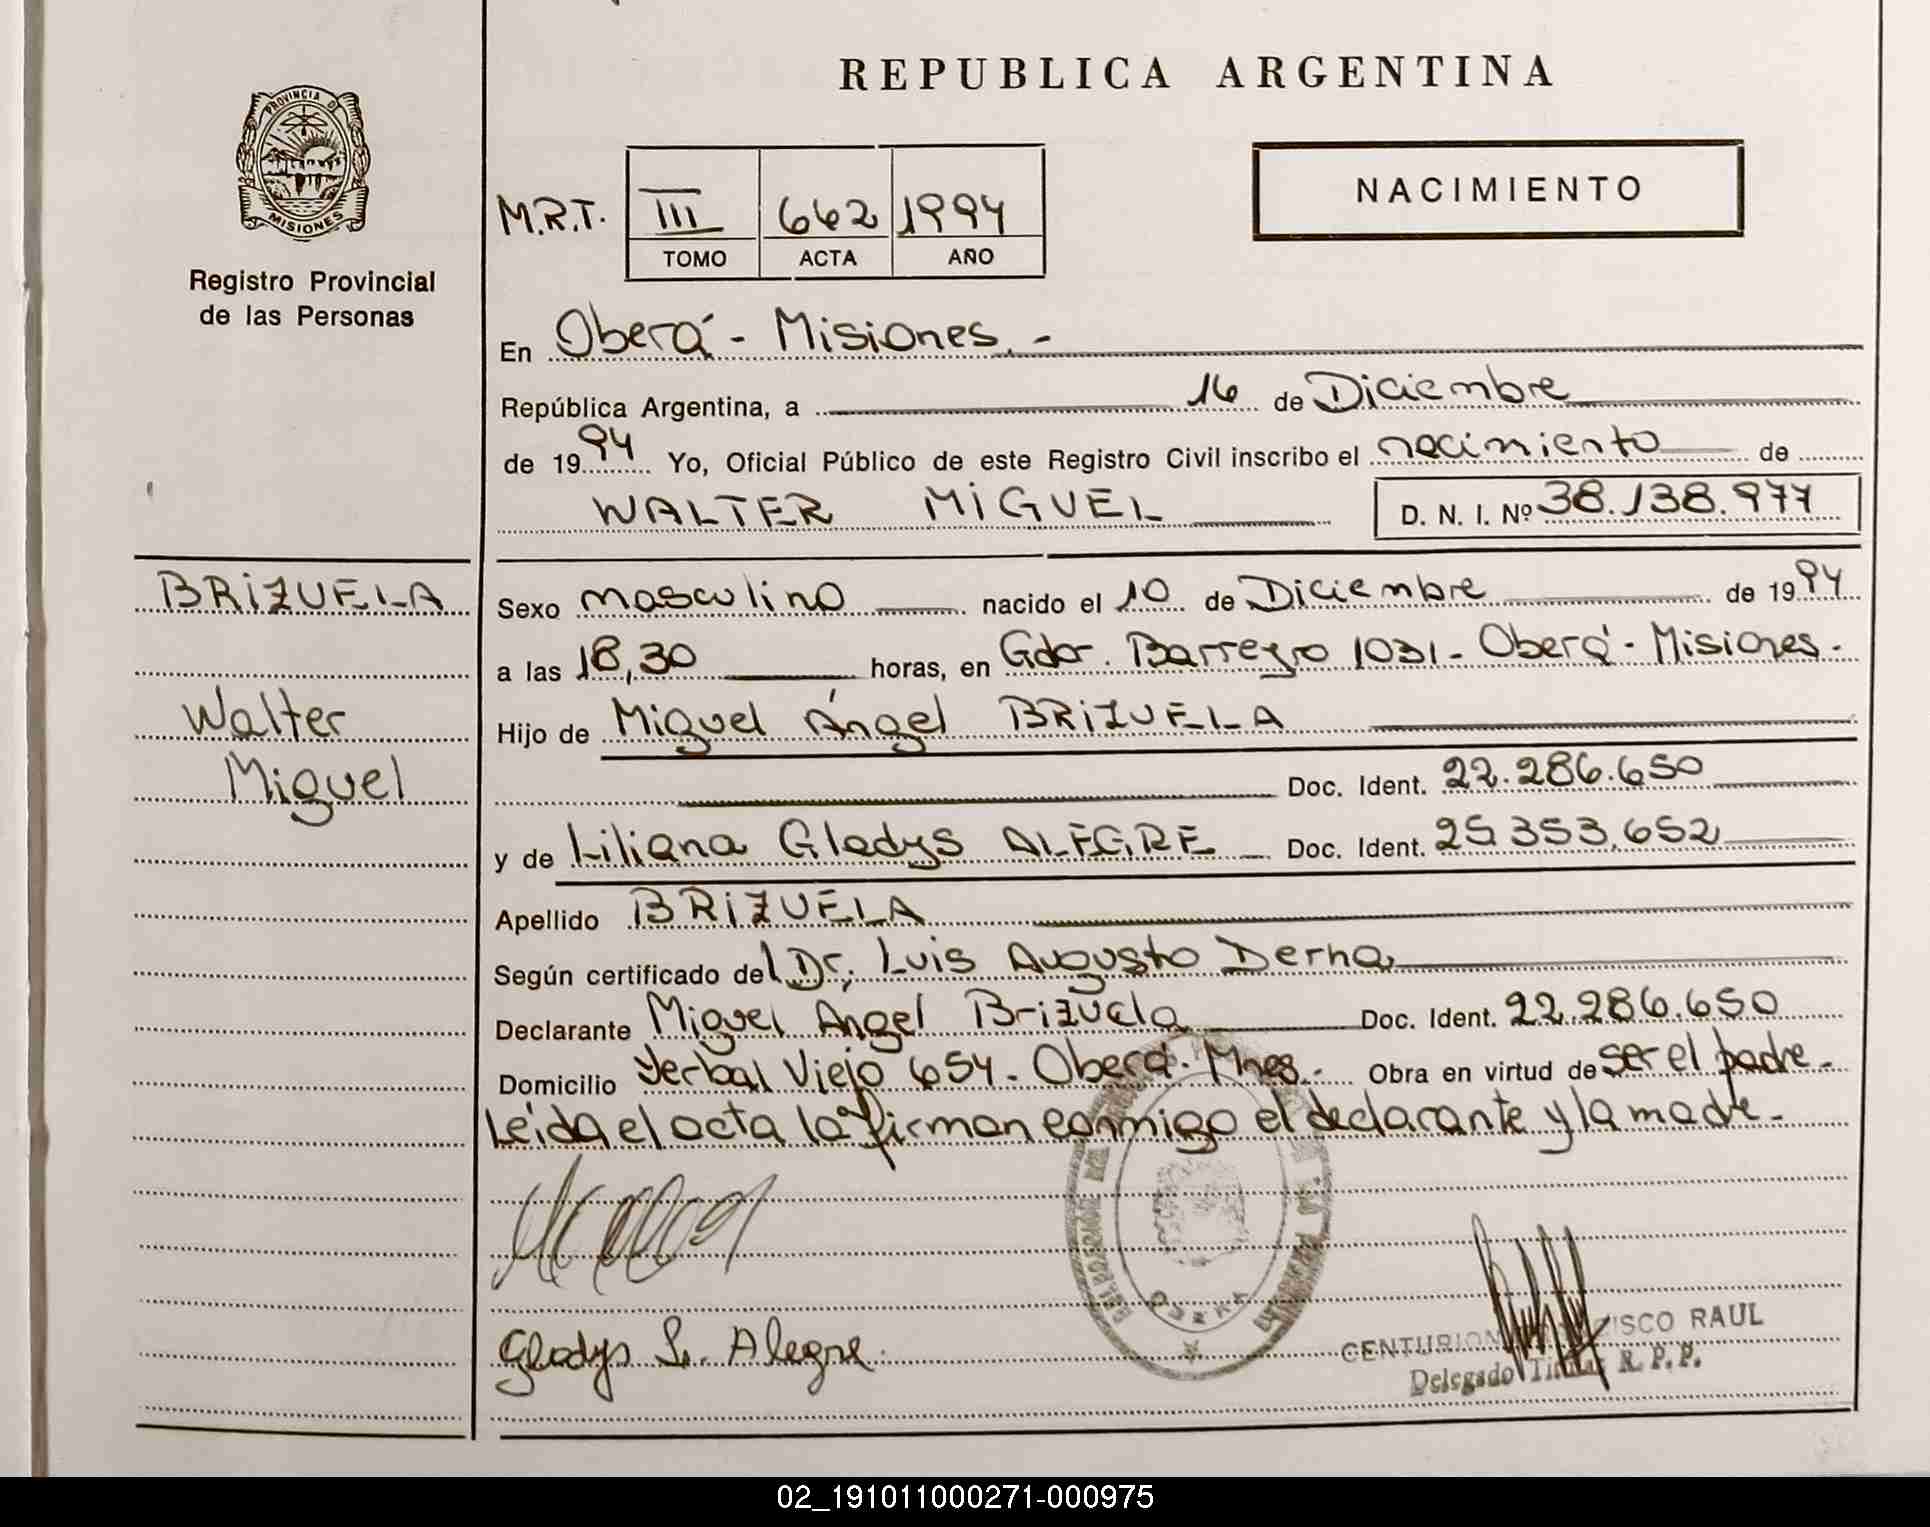 PROVINCIA DE
MISIONES
Registro Provincial
de las Personas
BRIZUELA
Walter
Miguel
REPUBLICA ARGENTINA
M.R.T. III 642 1994
TOMO ACTA AÑO
NACIMIENTO
En Oberá - Misiones.-
República Argentina, a 16 de Diciembre
de 1994 Yo, Oficial Público de este Registro Civil inscribo el nacimiento de
WALTER MIGUEL D. N. I. Nº 38.138.977
Sexo masculino nacido el 10 de Diciembre de 1994
a las 18,30 horas, en Gdor. Barreyro 1031 - Oberá - Misiones.
Hijo de Miguel Ángel BRIZUELA
Doc. Ident. 22.286.650
y de Liliana Gladys ALEGRE Doc. Ident. 25.353.652
Apellido BRIZUELA
Según certificado del Dr. Luis Augusto Derna
Declarante Miguel Angel Brizuela Doc. Ident. 22.286.650
Domicilio Yerbal Viejo 654 - Oberá - Mnes.- Obra en virtud de ser el padre.-
Leída el acta la firman conmigo el declarante y la madre.-
Gladys L. Alegre
CENTURION RAUL
Delegado R. P. P.
02_191011000271-000975